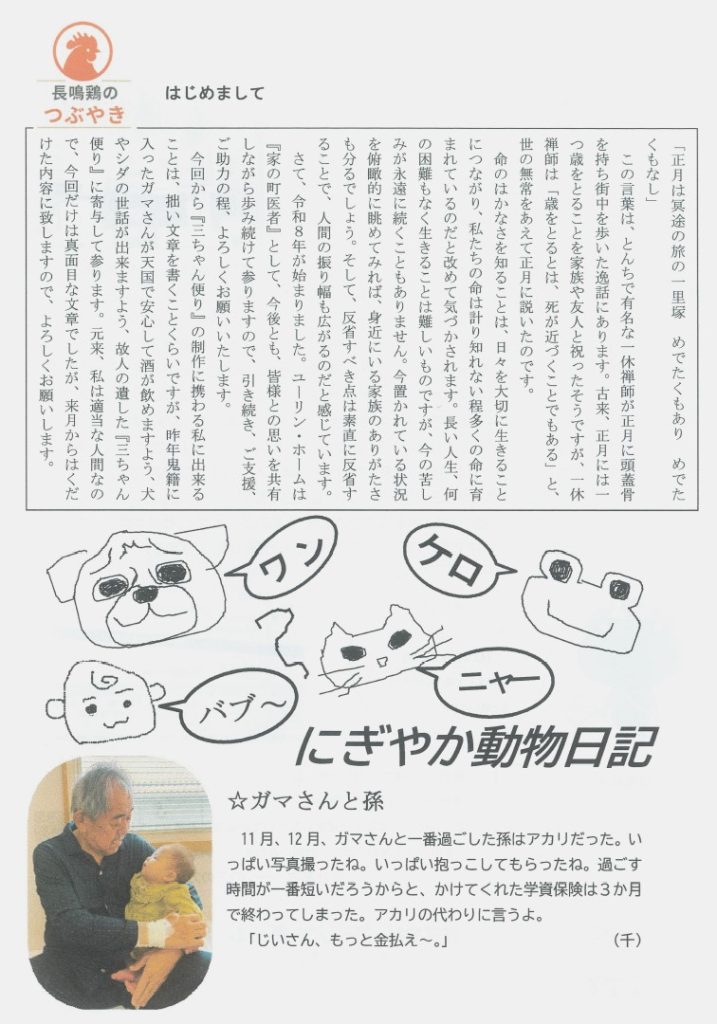 長鳴鶏の
つぶやき
はじめまして
「正月は冥途の旅の一里塚　めでたくもあり　めでた
くもなし」
　この言葉は、とんちで有名な一休禅師が正月に頭蓋骨
を持ち街中を歩いた逸話にあります。古来、正月には一
つ歳をとることを家族や友人と祝ったそうですが、一休
禅師は「歳をとるとは、死が近づくことでもある」と、
世の無常をあえて正月に説いたのです。
　命のはかなさを知ることは、日々を大切に生きること
につながり、私たちの命は計り知れない程多くの命に育
まれているのだと改めて気づかされます。長い人生、何
の困難もなく生きることは難しいものですが、今の苦し
みが永遠に続くこともありません。今置かれている状況
を俯瞰的に眺めてみれば、身近にいる家族のありがたさ
も分るでしょう。そして、反省すべき点は素直に反省す
ることで、人間の振り幅も広がるのだと感じています。
　さて、令和８年が始まりました。ユーリン・ホームは
『家の町医者』として、今後とも、皆様との思いを共有
しながら歩み続けて参りますので、引き続き、ご支援、
ご助力の程、よろしくお願いいたします。
　今回から『三ちゃん便り』の制作に携わる私に出来る
ことは、拙い文章を書くことくらいですが、昨年鬼籍に
入ったガマさんが天国で安心して酒が飲めますよう、犬
やシダの世話が出来ますよう、故人の遺した『三ちゃん
便り』に寄与して参ります。元来、私は適当な人間なの
で、今回だけは真面目な文章でしたが、来月からはくだ
けた内容に致しますので、よろしくお願いします。
ワン
ケロ
バブ～
ニャー
にぎやか動物日記
☆ガマさんと孫
　11月、12月、ガマさんと一番過ごした孫はアカリだった。い
っぱい写真撮ったね。いっぱい抱っこしてもらったね。過ごす
時間が一番短いだろうからと、かけてくれた学資保険は３か月
で終わってしまった。アカリの代わりに言うよ。
　「じいさん、もっと金払え～。」　（千）